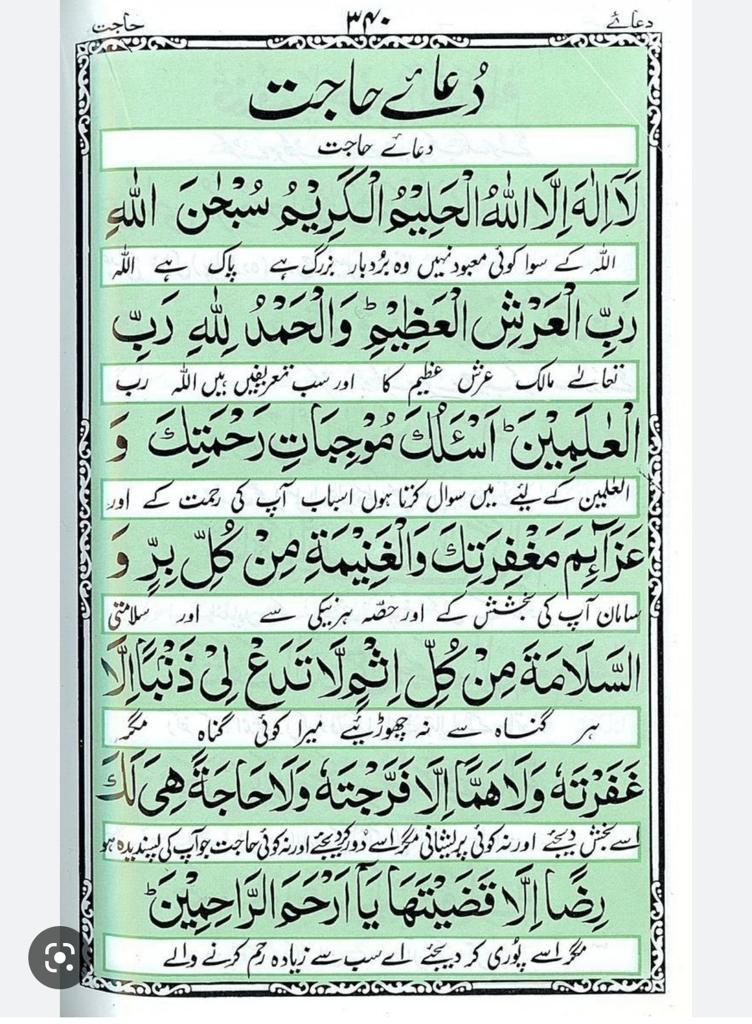 دعائے ۳۴۰ حاجت
دُعائے حاجت
دعائے حاجت
لَآ اِلٰهَ اِلَّا اللّٰهُ الْحَلِيْمُ الْكَرِيْمُ سُبْحٰنَ اللّٰهِ
اللہ کے سوا کوئی معبود نہیں وہ بُردبار بزرگ ہے پاک ہے اللہ
رَبِّ الْعَرْشِ الْعَظِيْمِ ؕ وَالْحَمْدُ لِلّٰهِ رَبِّ
تعالےٰ مالک عرش عظیم کا اور سب تعریفیں ہیں اللہ رب
الْعٰلَمِيْنَ ؕ اَسْئَلُكَ مُوْجِبَاتِ رَحْمَتِكَ وَ
العٰلمین کے لیئے میں سوال کرتا ہوں اسباب آپ کی رحمت کے اور
عَزَآئِمَ مَغْفِرَتِكَ وَالْغَنِيْمَةَ مِنْ كُلِّ بِرٍّ وَ
سامان آپ کی بخشش کے اور حصّہ ہر نیکی سے اور سلامتی
السَّلَامَةَ مِنْ كُلِّ اِثْمٍ لَّا تَدَعْ لِىْ ذَنْۢبًا اِلَّا
ہر گناہ سے نہ چھوڑیئے میرا کوئی گناہ مگر
غَفَرْتَهٗ وَلَا هَمًّا اِلَّا فَرَّجْتَهٗ وَلَا حَاجَةً هِىَ لَكَ
اسے بخش دیجئے اور نہ کوئی پریشانی مگر اسے دور کردیجئے اور نہ کوئی حاجت جو آپ کی پسندیدہ ہو
رِضًا اِلَّا قَضَيْتَهَا يَآ اَرْحَمَ الرَّاحِمِيْنَ ؕ
مگر اسے پُوری کر دیجئے اے سب سے زیادہ رحم کرنے والے